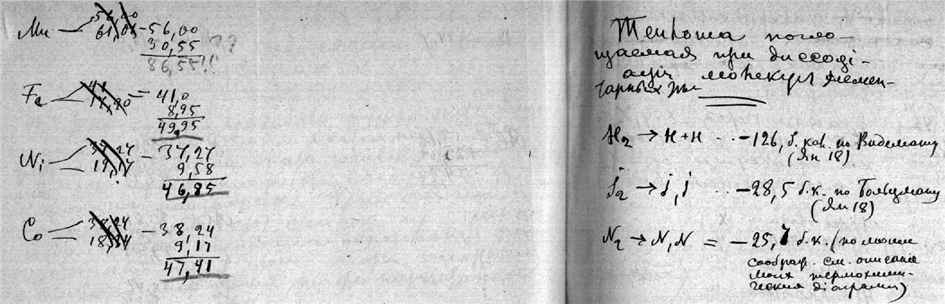 Mn — -56,00
30,55
86,55!!
Fe — 41,0
8,95
49,95
Ni — 37,27
9,58
46,85
Co — -38,24
9,17
47,41
Теплота погло-
щаемая при диссоці-
аціи молекулъ элемен-
тарныхъ
H2 → H+H ... -126, б. кал. по Видеману
(Ян 18)
J2 → j, j ... -28,5 б.к. по Больцману
(Ян 18)
N2 → N,N = -25,7 б.к. (по моимъ
соображ. см. описание
моихъ термохими-
ческихъ діаграммъ)